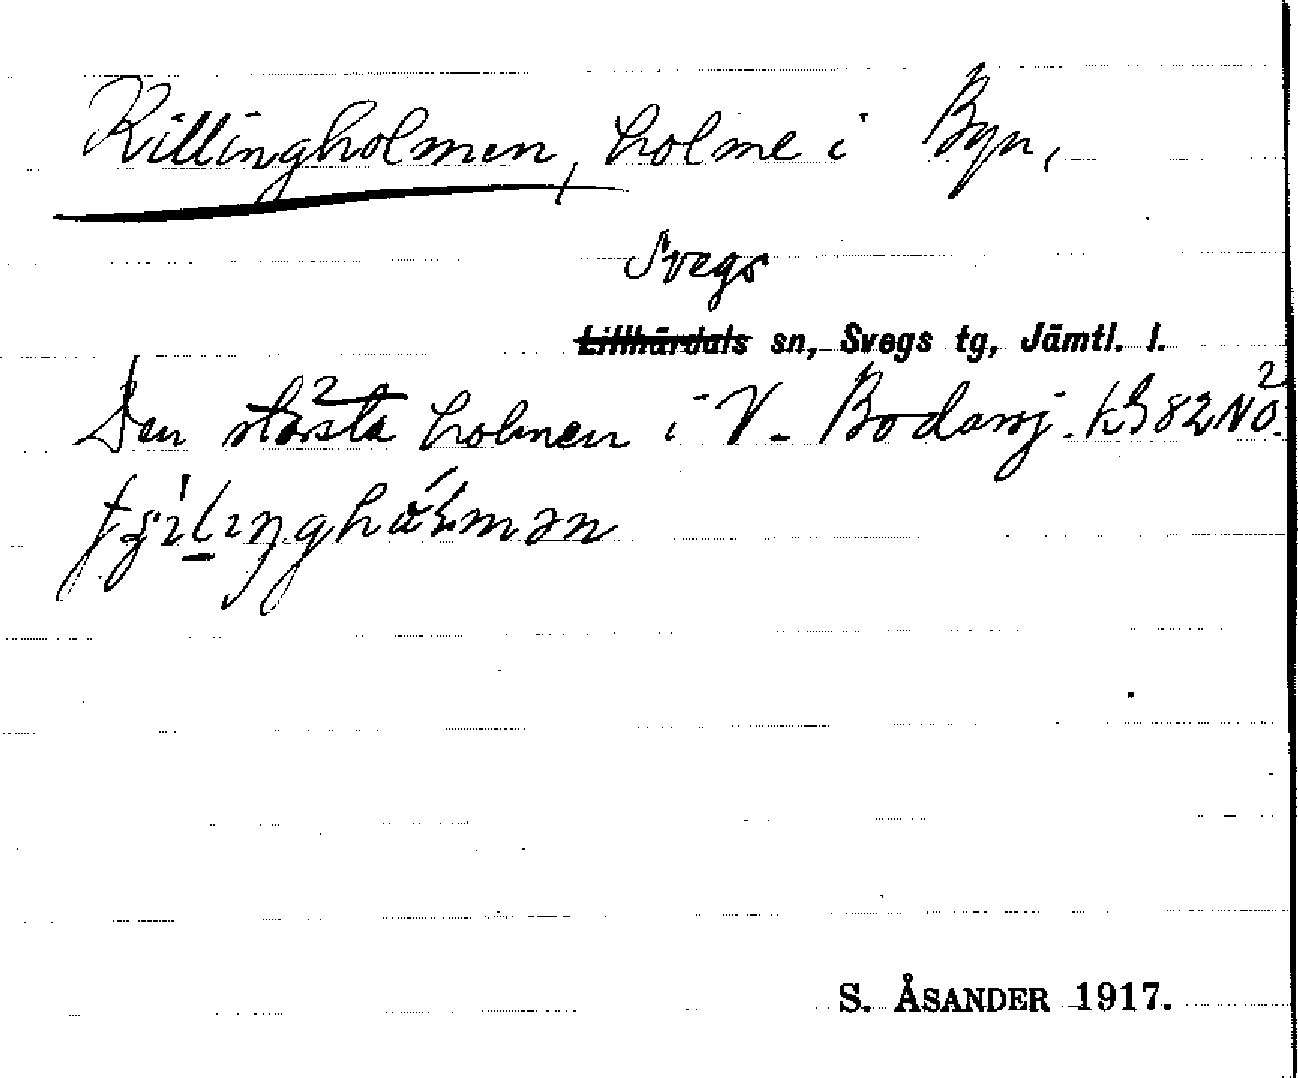 Killingholmen, holme i Byn,
Svegs
Lillhärdals sn, Svegs tg, Jämtl. l.
Den största holmen i V. Bodarsj. kB 82 NO²
S. ÅSANDER 1917.